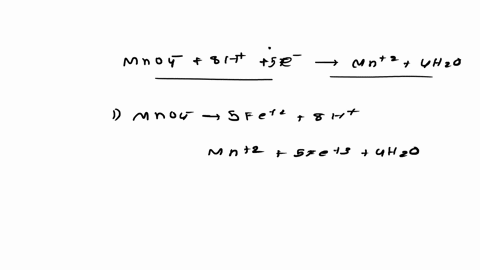 MnO4⁻ + 8H⁺ + 5e⁻ → Mn⁺² + 4H2O
1) MnO4⁻ → 5Fe⁺² + 8H⁺
Mn⁺² + 5Fe⁺³ + 4H2O